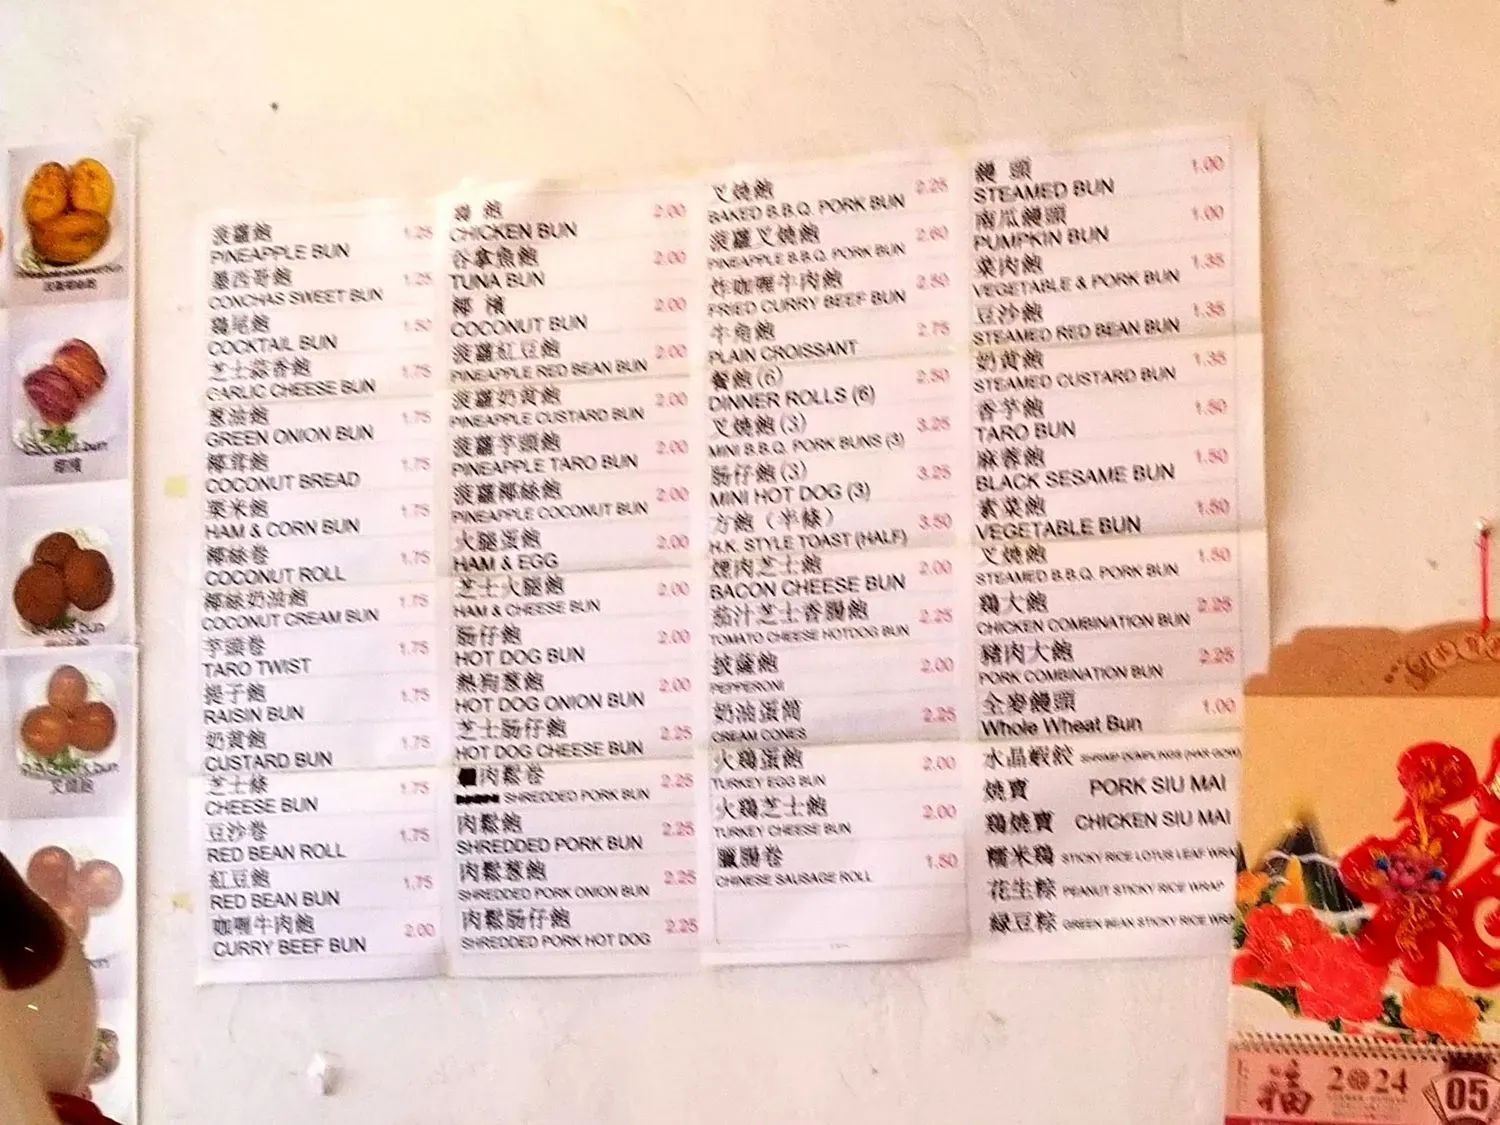 菠蘿飽 1.25
PINEAPPLE BUN
墨西哥飽 1.25
CONCHAS SWEET BUN
鷄尾飽 1.50
COCKTAIL BUN
芝士蒜香飽 1.75
GARLIC CHEESE BUN
蔥油飽 1.75
GREEN ONION BUN
椰茸飽 1.75
COCONUT BREAD
粟米飽 1.75
HAM & CORN BUN
椰絲卷 1.75
COCONUT ROLL
椰絲奶油飽 1.75
COCONUT CREAM BUN
芋頭卷 1.75
TARO TWIST
提子飽 1.75
RAISIN BUN
奶黄飽 1.75
CUSTARD BUN
芝士條 1.75
CHEESE BUN
豆沙卷 1.75
RED BEAN ROLL
紅豆飽 1.75
RED BEAN BUN
咖喱牛肉飽 2.00
CURRY BEEF BUN
鷄 飽 2.00
CHICKEN BUN
吞拿魚飽 2.00
TUNA BUN
椰 檳 2.00
COCONUT BUN
菠蘿紅豆飽 2.00
PINEAPPLE RED BEAN BUN
菠蘿奶黄飽 2.00
PINEAPPLE CUSTARD BUN
菠蘿芋頭飽 2.00
PINEAPPLE TARO BUN
菠蘿椰絲飽 2.00
PINEAPPLE COCONUT BUN
火腿蛋飽 2.00
HAM & EGG
芝士火腿飽 2.00
HAM & CHEESE BUN
腸仔飽 2.00
HOT DOG BUN
熱狗蔥飽 2.00
HOT DOG ONION BUN
芝士腸仔飽 2.25
HOT DOG CHEESE BUN
肉鬆卷 2.25
SHREDDED PORK BUN
肉鬆飽 2.25
SHREDDED PORK BUN
肉鬆蔥飽 2.25
SHREDDED PORK ONION BUN
肉鬆腸仔飽 2.25
SHREDDED PORK HOT DOG
叉燒飽 2.25
BAKED B.B.Q. PORK BUN
菠蘿叉燒飽 2.60
PINEAPPLE B.B.Q. PORK BUN
炸咖喱牛肉飽 2.50
FRIED CURRY BEEF BUN
牛角飽 2.75
PLAIN CROISSANT
餐飽(6) 2.50
DINNER ROLLS (6)
叉燒飽(3) 3.25
MINI B.B.Q. PORK BUNS (3)
腸仔飽(3) 3.25
MINI HOT DOG (3)
方飽（半條） 3.50
H.K. STYLE TOAST (HALF)
煙肉芝士飽 2.00
BACON CHEESE BUN
茄汁芝士香腸飽 2.25
TOMATO CHEESE HOTDOG BUN
披薩飽 2.00
PEPPERONI
奶油蛋筒 2.25
CREAM CONES
火鷄蛋飽 2.00
TURKEY EGG BUN
火鷄芝士飽 2.00
TURKEY CHEESE BUN
臘腸卷 1.50
CHINESE SAUSAGE ROLL
饅 頭 1.00
STEAMED BUN
南瓜饅頭 1.00
PUMPKIN BUN
菜肉飽 1.35
VEGETABLE & PORK BUN
豆沙飽 1.35
STEAMED RED BEAN BUN
奶黄飽 1.35
STEAMED CUSTARD BUN
香芋飽 1.50
TARO BUN
麻蓉飽 1.50
BLACK SESAME BUN
素菜飽 1.50
VEGETABLE BUN
叉燒飽 1.50
STEAMED B.B.Q. PORK BUN
鷄大飽 2.25
CHICKEN COMBINATION BUN
豬肉大飽 2.25
PORK COMBINATION BUN
全麥饅頭 1.00
Whole Wheat Bun
水晶蝦餃 SHRIMP DUMPLINGS (HAR GOW)
燒賣 PORK SIU MAI
鷄燒賣 CHICKEN SIU MAI
糯米鷄 STICKY RICE LOTUS LEAF WRA
花生粽 PEANUT STICKY RICE WRAP
綠豆粽 GREEN BEAN STICKY RICE WRA
椰檳
叉燒飽
福 2024 05